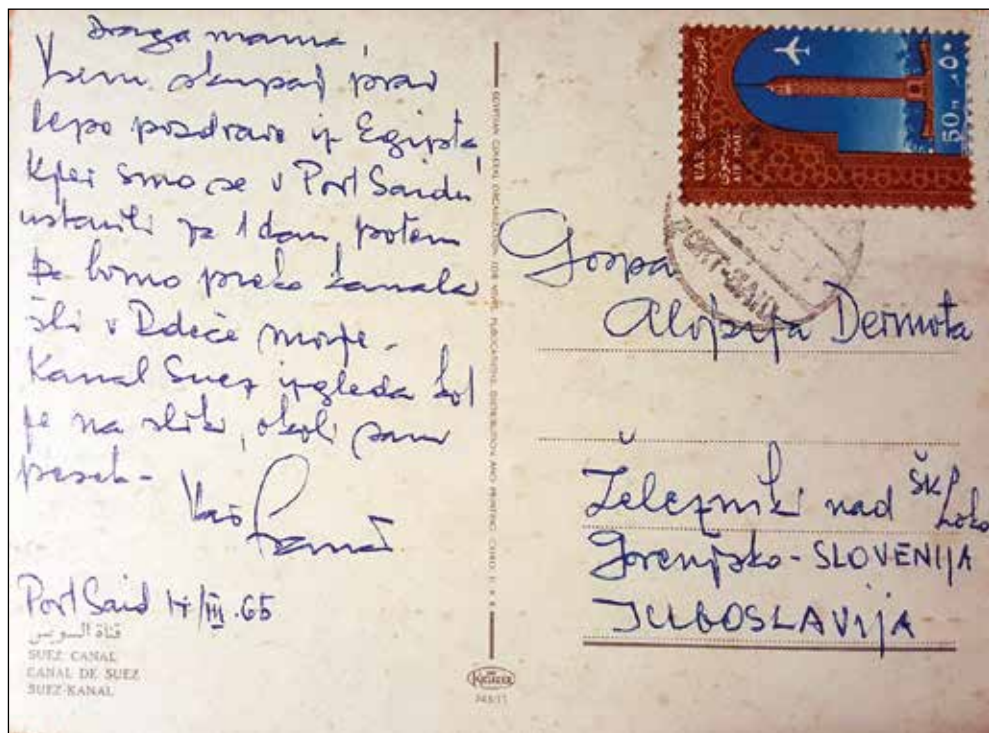 Draga mama,
Vsem skupaj prav
lepo pozdravo iz Egipta,
kjer smo se v Port Saidu
ustavili za 1 dan, potem
pa bomo preko kanala
šli v Rdeče morje.
Kanal Suez izgleda kot
je na sliki, okoli sam
pesek.
Vaš
Port Said 14/III.65
قناة السويس
SUEZ CANAL
CANAL DE SUEZ
SUEZ-KANAL
EGYPTIAN GENERAL ORGANIZATION FOR NEWS, PUBLICATIONS, DISTRIBUTION AND PRINTING
743/11
U.A.R.
AIR MAIL
50 M
٥٠
PORT-SAID
Gospa
Alojzija Dermota
Železniki nad ŠK Loko
Gorenjsko-SLOVENIJA
JUGOSLAVIJA